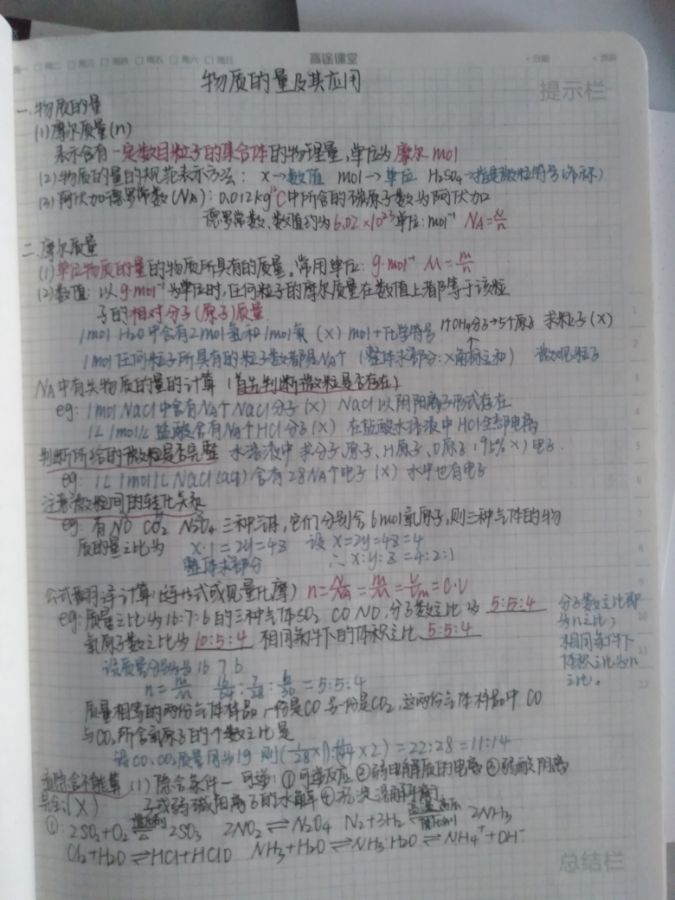 高途课堂
提示栏
物质的量及其应用
一.物质的量
(1)摩尔质量(n)
表示含有一定数目粒子的集合体的物理量,单位为摩尔mol
(2)物质的量的规范表示方法: x→数值 mol→单位 H₂SO₄→指定微粒符号(名称)
(3)阿伏加德罗常数(NA): 0.012kg¹²C中所含的碳原子数为阿伏加
德罗常数,数值约为6.02×10²³单位:mol⁻¹ NA=N/n
二.摩尔质量
(1)单位物质的量的物质所具有的质量。常用单位: g·mol⁻¹ M=m/n
(2)数值: 以g·mol⁻¹为单位时,任何粒子的摩尔质量在数值上都等于该粒
子的相对分子(原子)质量.
1mol H₂O中含有2mol氢和1mol氧 (x) mol+化学符号
求粒子(x)
1mol任何粒子所具有的粒子数都是NA个
微观粒子
NA中有关物质的量的计算 (首先判断微粒是否存在)
eg: 1mol NaCl中含有NA个NaCl分子(x) NaCl以阴阳离子形式存在
1L 1mol/L 盐酸含有NA个HCl分子(x) 在盐酸水溶液中HCl全部电离
判断所给的微粒是否完整 水溶液中 求分子,原子,H原子,O原子 电子
eg: 1L 1mol/L NaCl(aq)含有28NA个电子 (x) 水中也有电子
注意微粒间的转化关系
eg: 有NO CO₂ N₂O₄三种气体,它们分别含6mol氧原子,则三种气体的物
质的量之比为 x·1=2y=4z 设x=2y=4z=4
∴x:y:z=4:2:1
n=N/NA=m/M=V/Vm=c·V
eg:质量之比为16:7:6的三种气体SO₂ CO NO,分子数之比为 5:5:4
氧原子数之比为 10:5:4 相同条件下的体积之比 5:5:4
分子数之比即
为n之比,
相同条件下
体积之比为n
之比。
设质量分别为16 7 6
n=m/M 16/64:7/28:6/30=5:5:4
质量相等的两份气体样品,一份是CO另一份是CO₂,这两份气体样品中,CO
与CO₂所含氧原子的个数之比是
设CO、CO₂质量同为1g 则(1/28×1):(1/44×2)=22:28=11:14
(1)隐含条件—可逆: ①可逆反应 ②弱电解质的电离 ③弱酸阴离
子或弱碱阳离子的水解
① 2SO₂+O₂ 2SO₃ 2NO₂⇌N₂O₄ N₂+3H₂ 2NH₃
Cl₂+H₂O⇌HCl+HClO NH₃+H₂O⇌NH₃·H₂O⇌NH₄⁺+OH⁻
总结栏